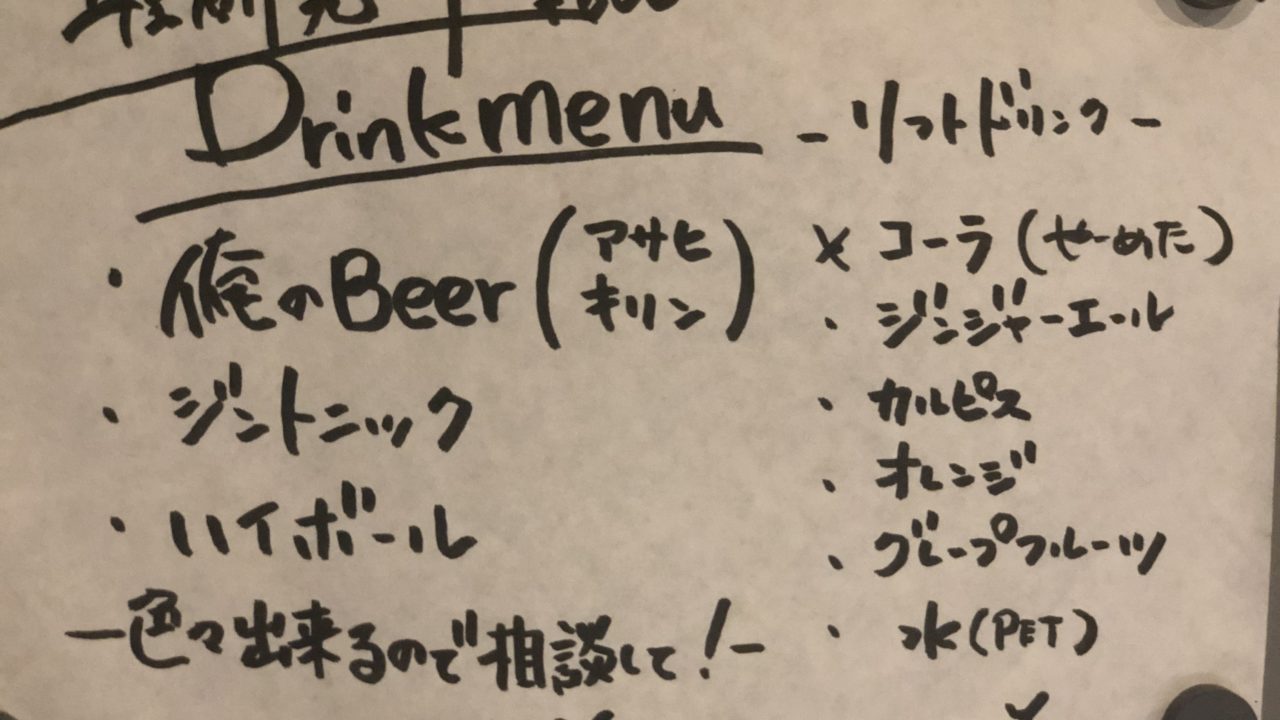 Drink menu
・俺のBeer(アサヒ キリン)
・ジントニック
・ハイボール
ー色々出来るので相談して!ー
- リフトドリンク -
× コーラ(せーめた)
・ジンジャーエール
・カルピス
・オレンジ
・グレープフルーツ
・水(PET)